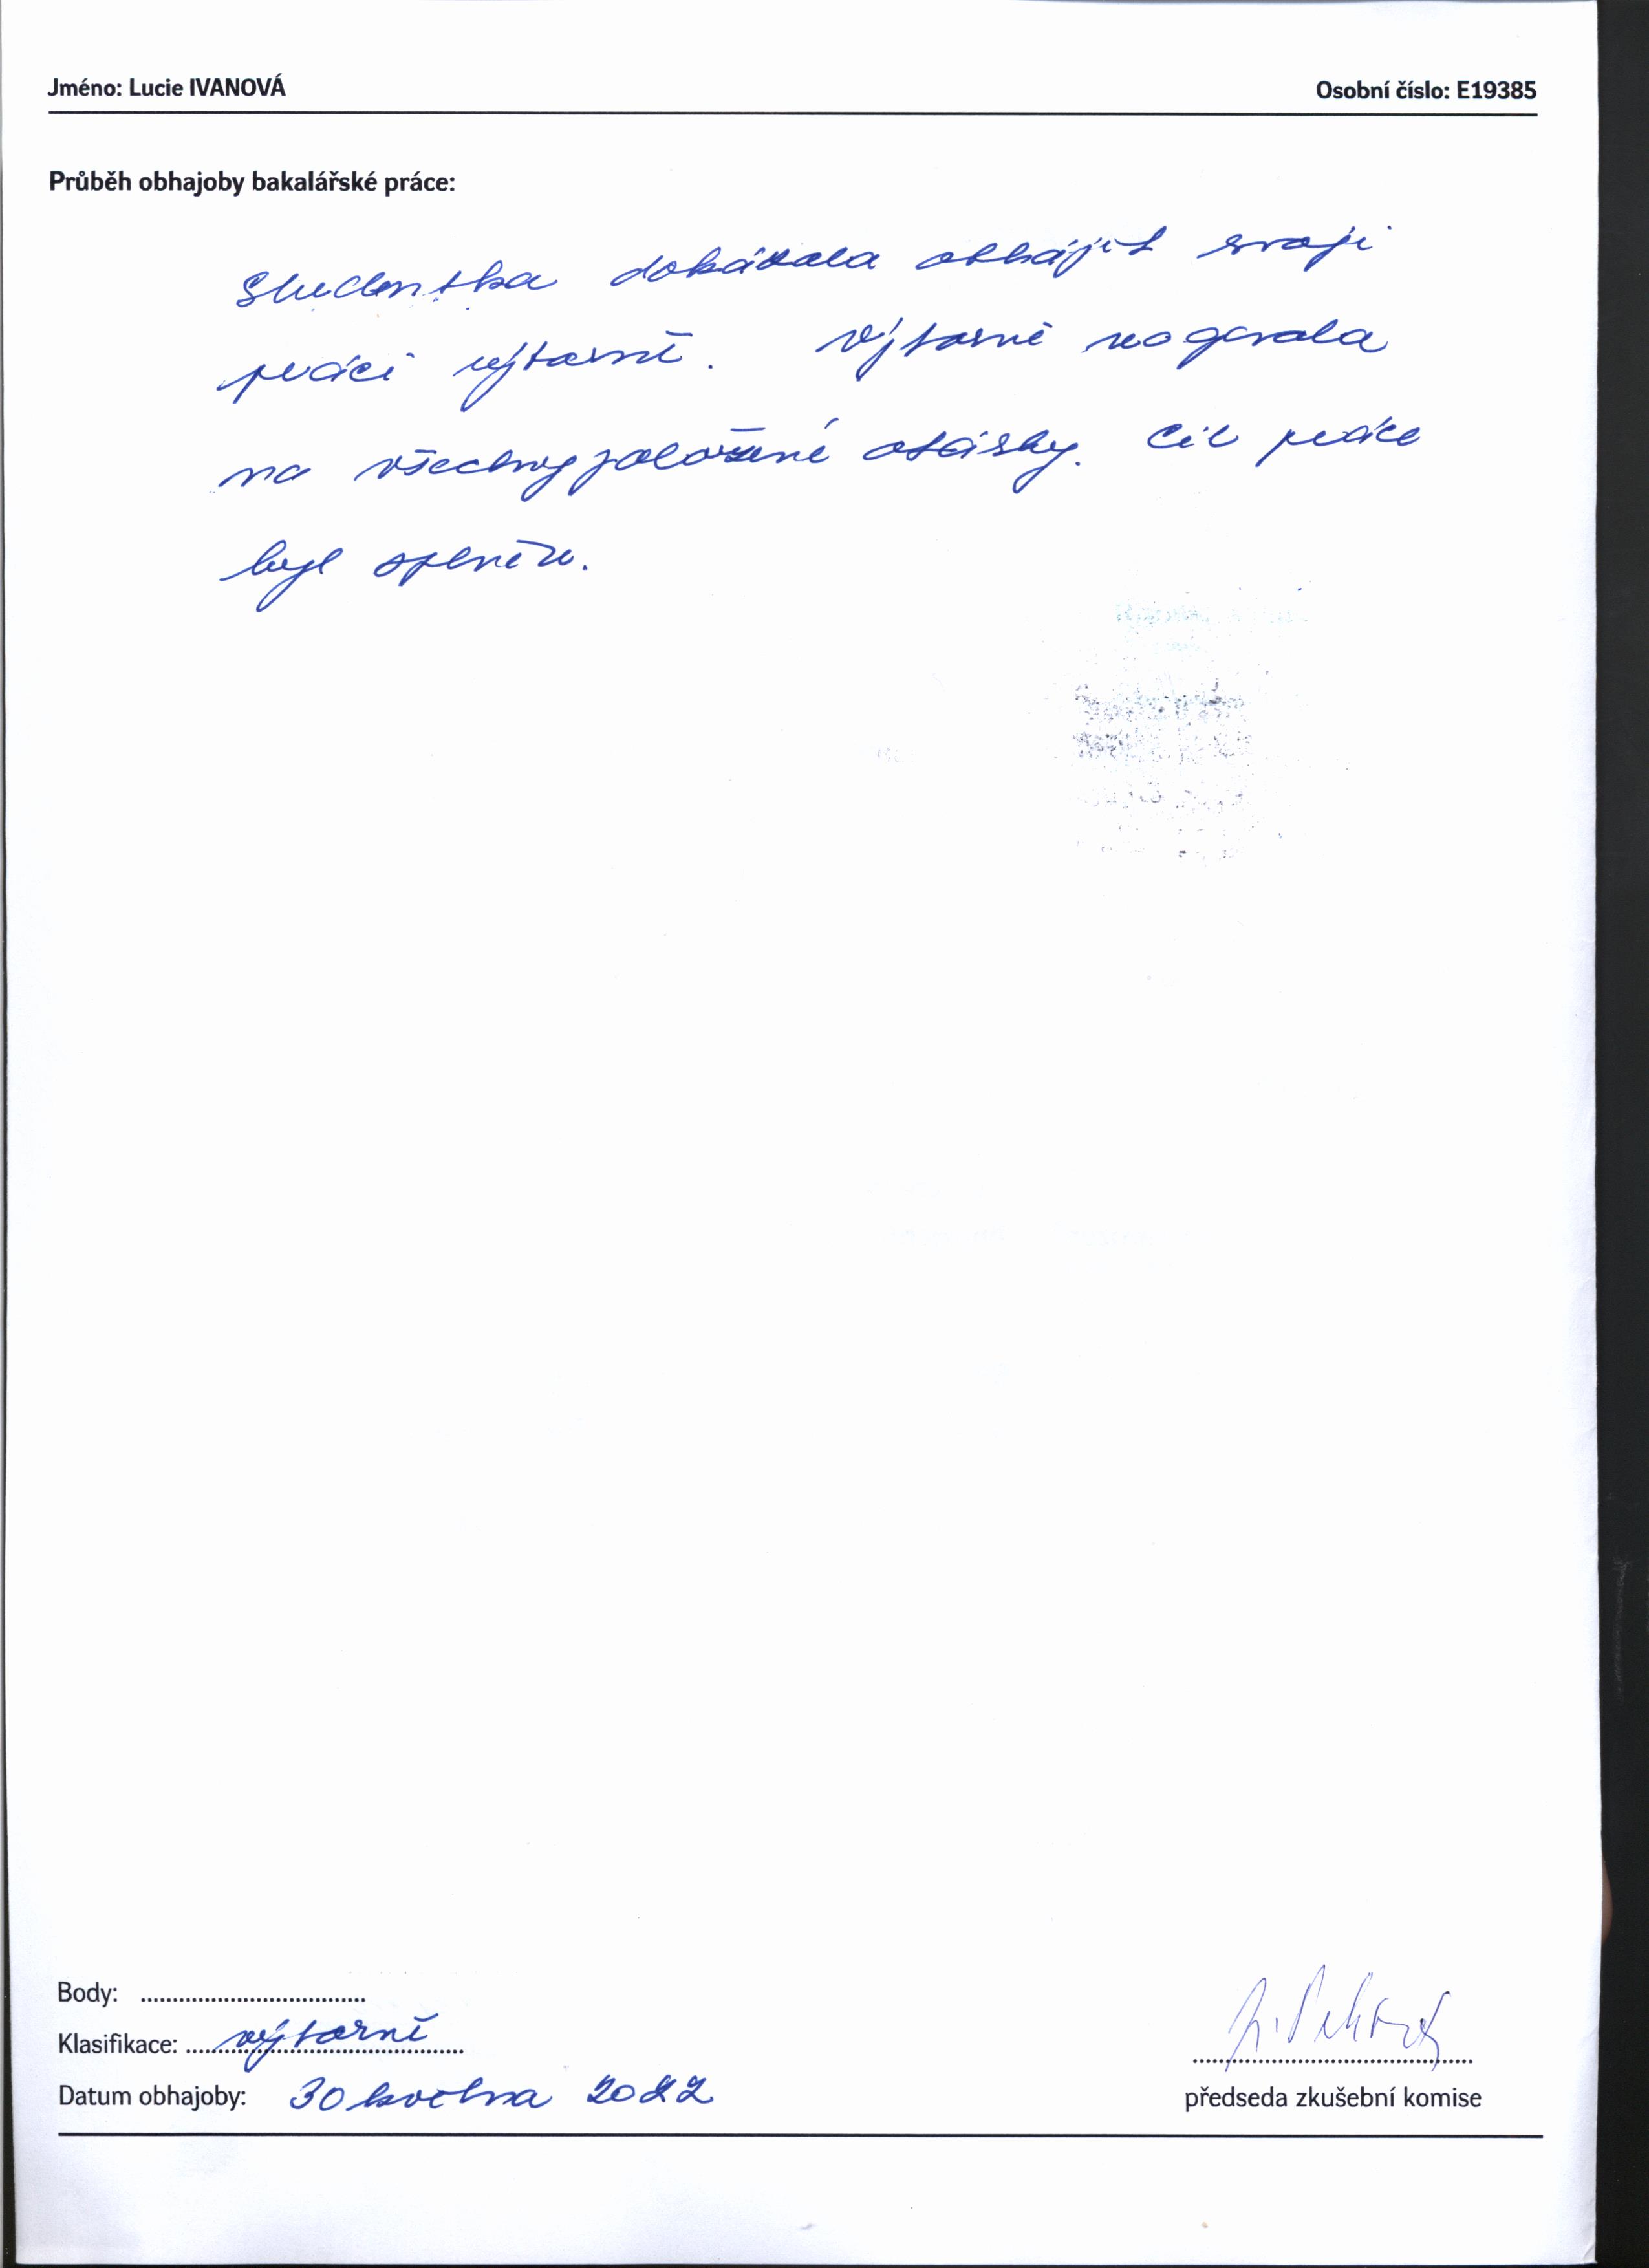 Jméno: Lucie IVANOVÁ Osobní číslo: E19385
Průběh obhajoby bakalářské práce:
Studentka dokázala obhájit svoji
práci výborně. Výborně reagovala
na všechny položené otázky. Cíl práce
byl splněn.
Body: ....................................
Klasifikace: výborně
Datum obhajoby: 30 května 2022
předseda zkušební komise